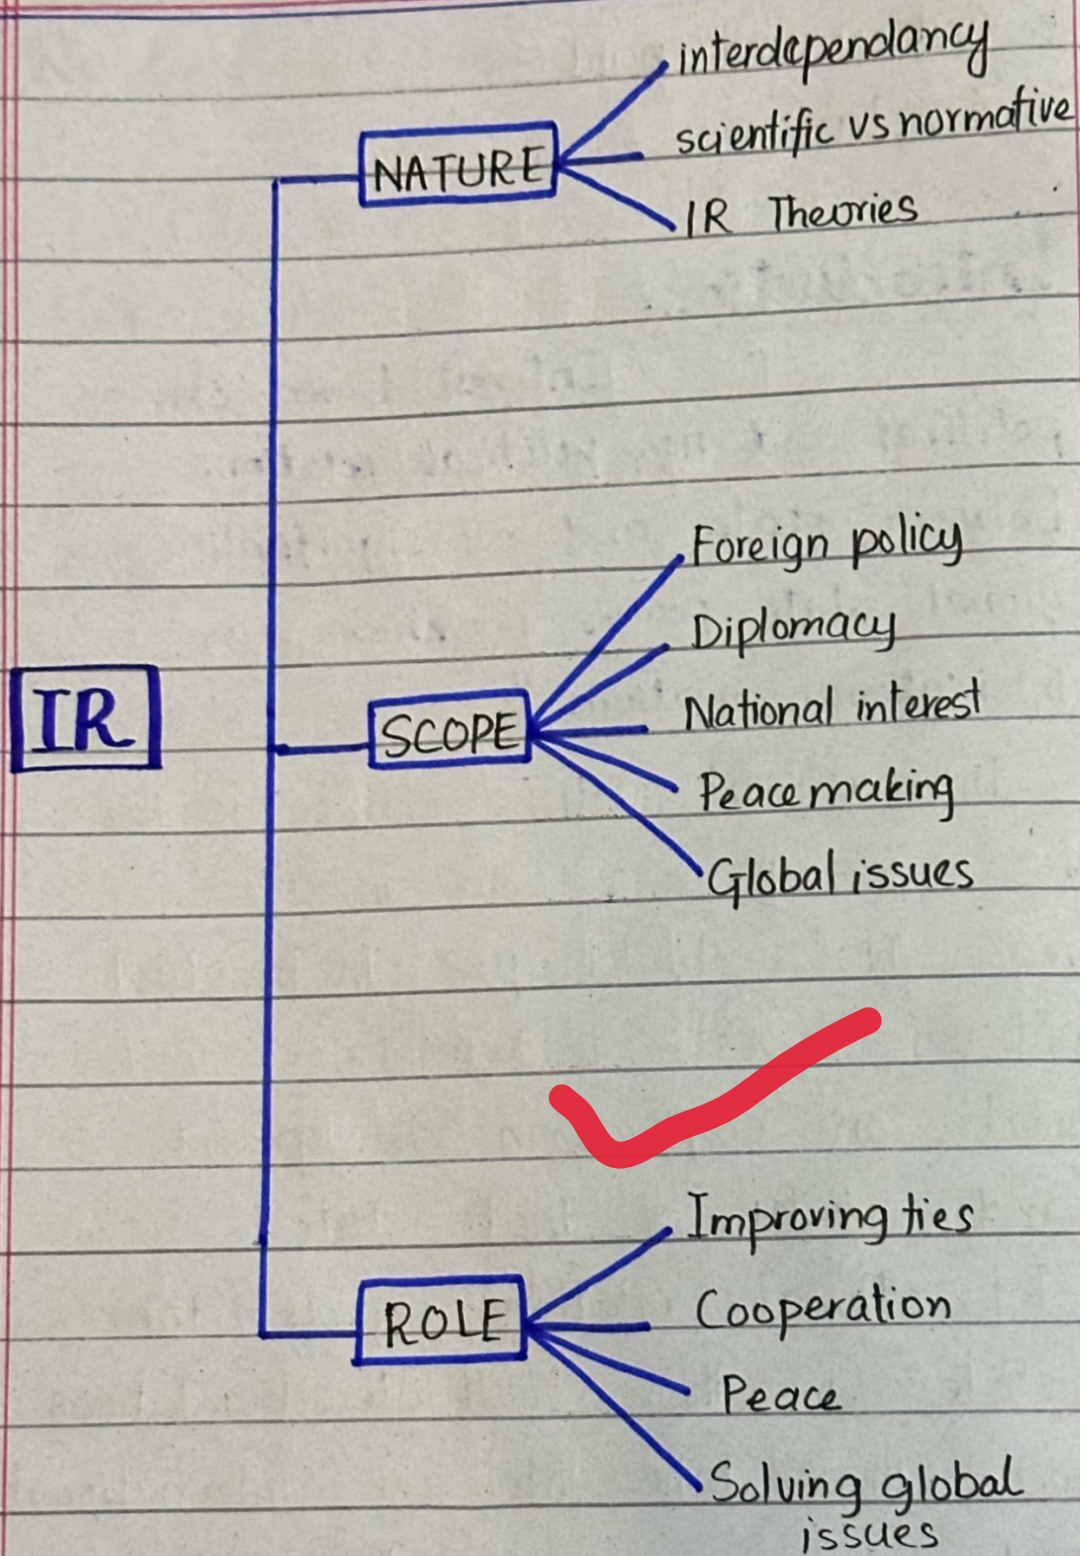 interdependancy
scientific vs normative
NATURE
IR Theories
Foreign policy
Diplomacy
IR
SCOPE
National interest
Peace making
Global issues
Improving ties
ROLE
Cooperation
Peace
Solving global
issues